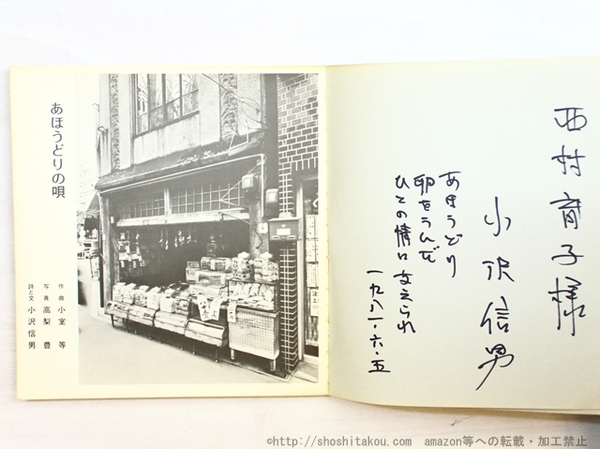 あほうどりの唄
作曲 小室 等
写真 高梨 豊
詩と文 小沢信男
西村育子様
小沢信男
あほうどり
卵をうんで
ひとの情に支えられ
一九八一・六・五
©http://shoshitakou.com amazon等への転載・加工禁止